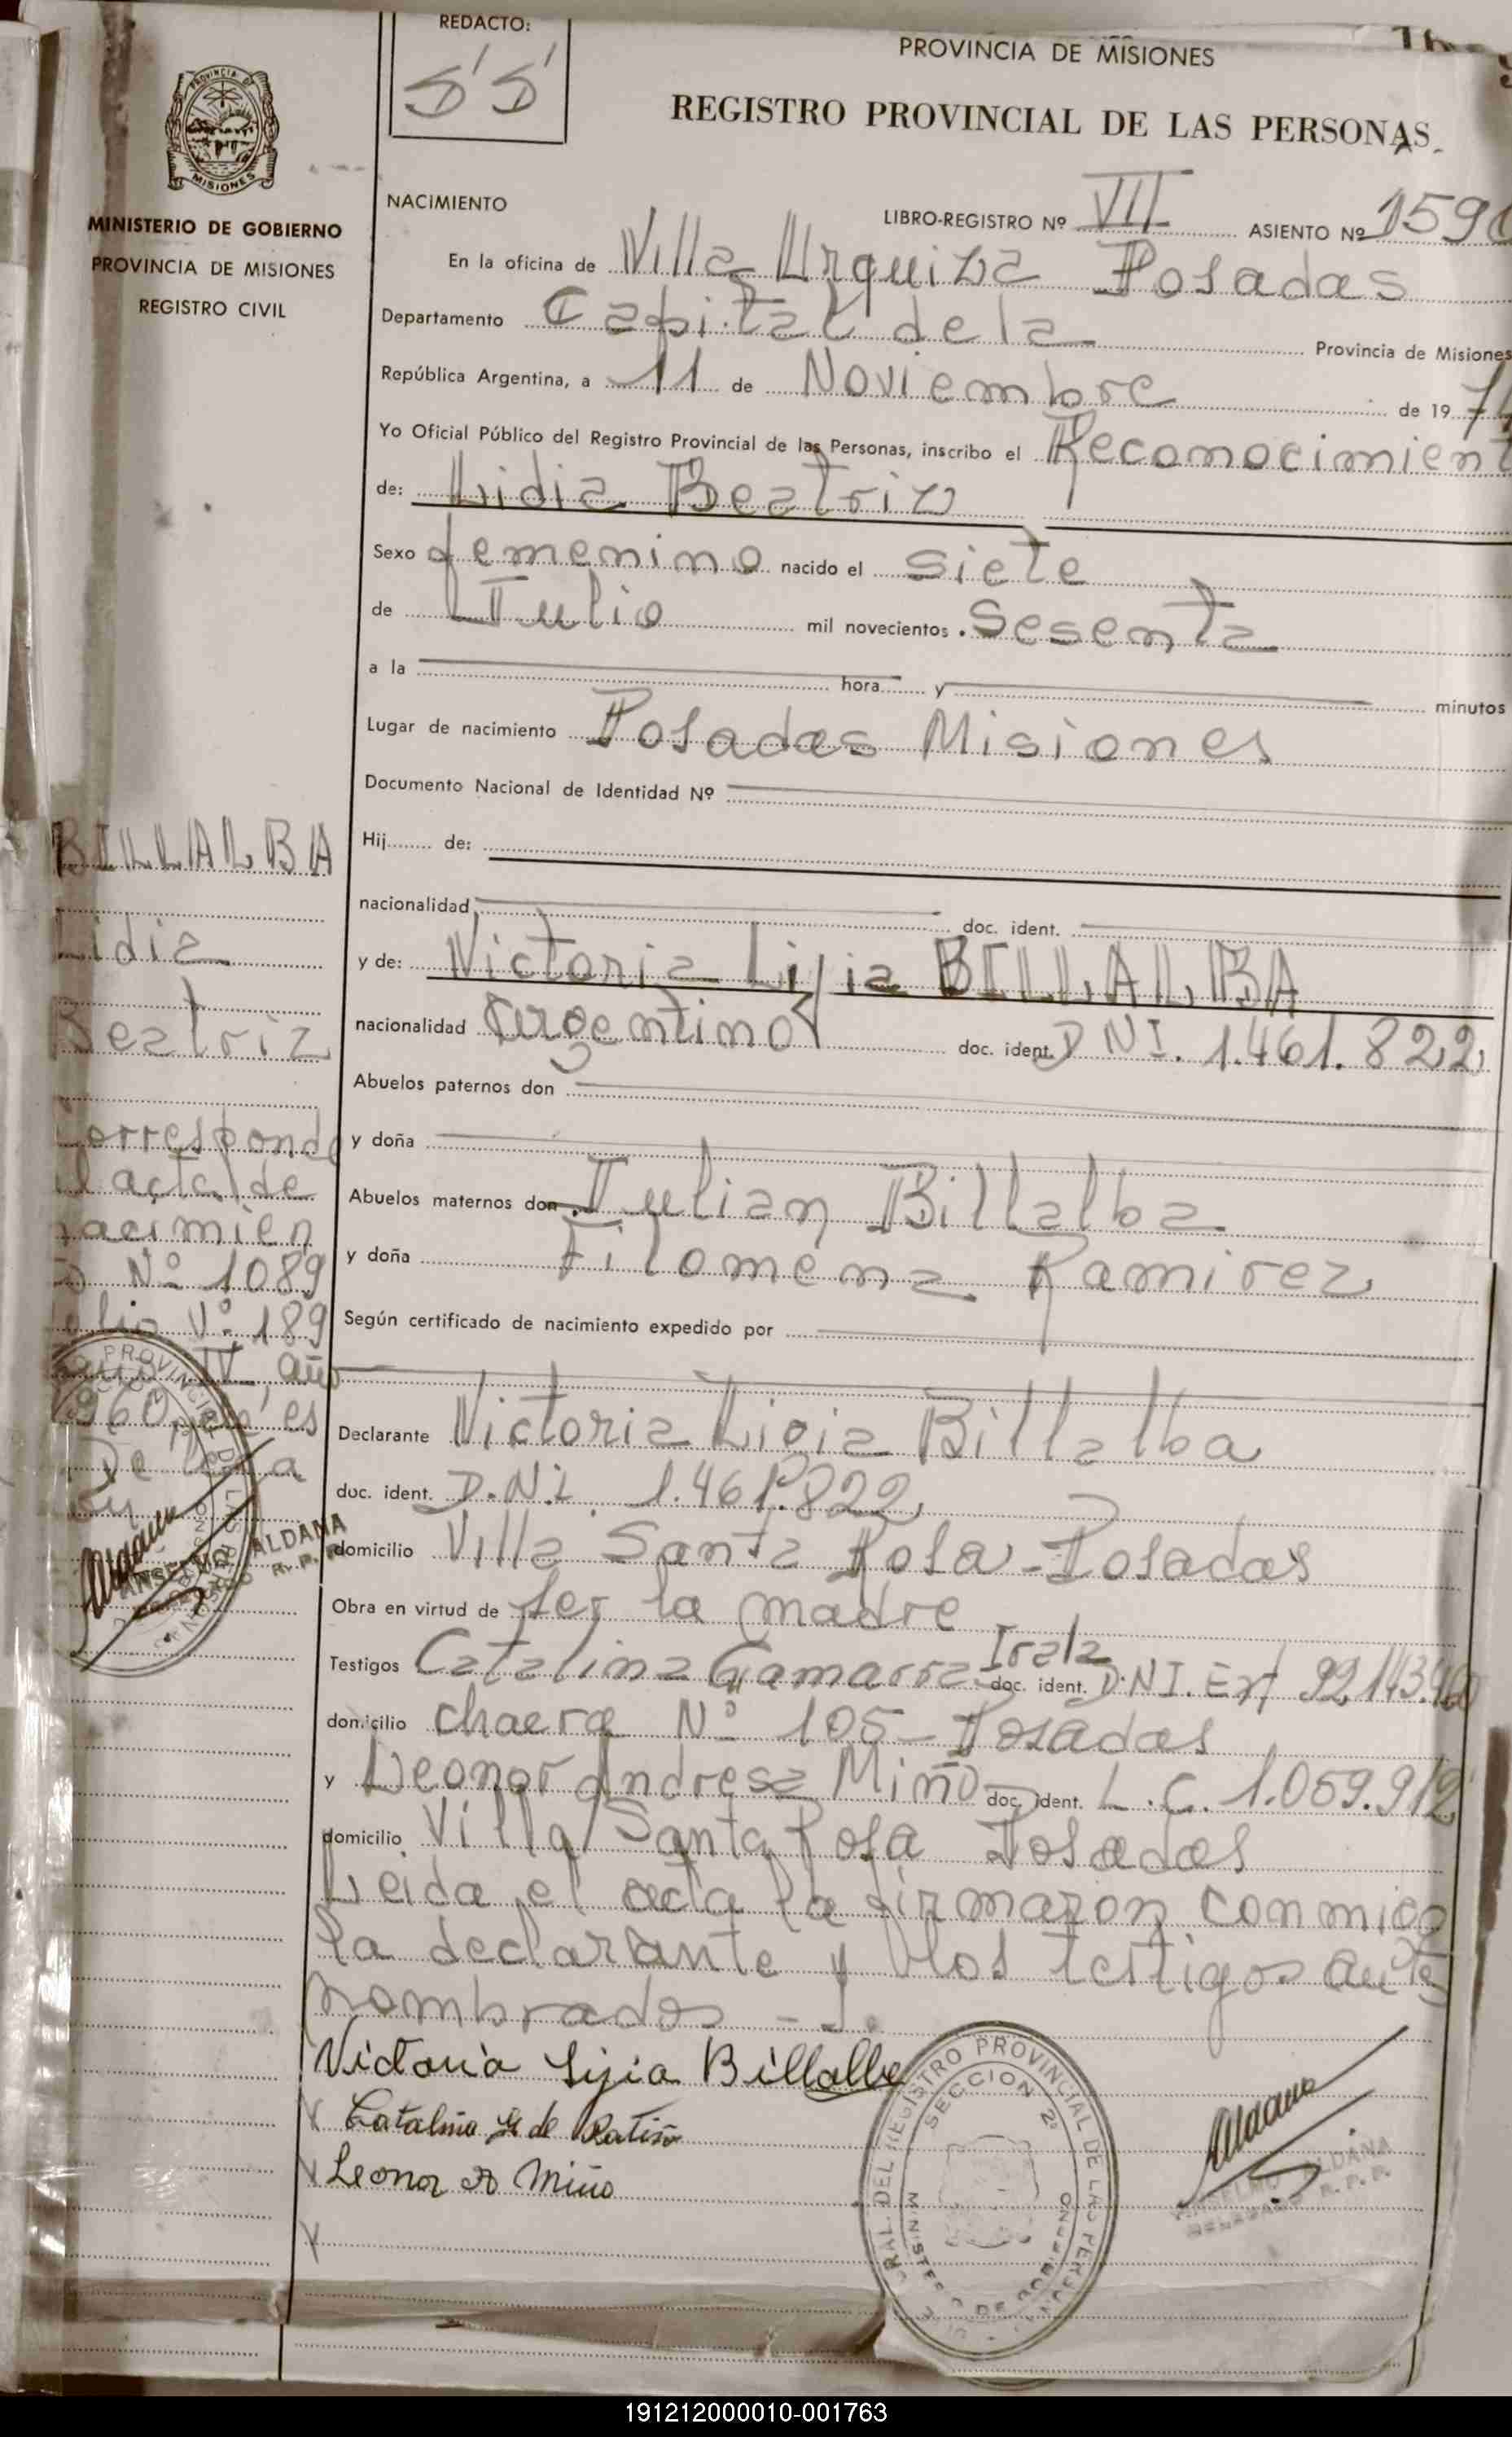 REDACTO:
PROVINCIA DE MISIONES
REGISTRO PROVINCIAL DE LAS PERSONAS
PROVINCIA DE
MISIONES
MINISTERIO DE GOBIERNO
PROVINCIA DE MISIONES
REGISTRO CIVIL
NACIMIENTO
LIBRO-REGISTRO Nº VII ASIENTO Nº 159
En la oficina de Villa Urquiza Posadas
Departamento Capital de la Provincia de Misiones
República Argentina, a 11 de Noviembre de 19 7
Yo Oficial Público del Registro Provincial de las Personas, inscribo el Reconocimient
de: Lidia Beatriz
Sexo femenino nacido el siete
de Julio mil novecientos Sesenta
a la hora y minutos
Lugar de nacimiento Posadas Misiones
Documento Nacional de Identidad Nº
Hij de:
nacionalidad doc. ident.
y de: Victoria Lijia BILLALBA
nacionalidad argentino doc. ident. D N I. 1.461.822
Abuelos paternos don
y doña
Abuelos maternos don Julian Billalba
y doña Filomena Ramirez
Según certificado de nacimiento expedido por
Declarante Victoria Ligia Billalba
doc. ident. D.N.I. 1.461.822
domicilio Villa Santa Rosa - Posadas
Obra en virtud de ser la madre
Testigos Catalina Gamarra Irala doc. ident. D.N.I. Ext 92.143.
domicilio chacra Nº 105 - Posadas
y Leonor Andresa Miño doc. ident. L.C. 1.059.912
domicilio Villa Santa Rosa Posadas
Leida el acta la firmaron conmigo
la declarante y los testigos antes
nombrados
Victoria Lijia Billalba
Catalina G de Patiño
Leonor A Miño
BILLALBA
Lidia
Beatriz
Corresponde
al acta de
nacimien
Nº 1089
folio Nº 189
IV, año
1960
ANSELMO ALDANA
R. P. P.
REGISTRO PROVINCIAL DE LAS PERSONAS
SECCION 2ª
MINISTERIO DE GOBIERNO
ANSELMO ALDANA
DELEGADO R. P. P.
191212000010-001763